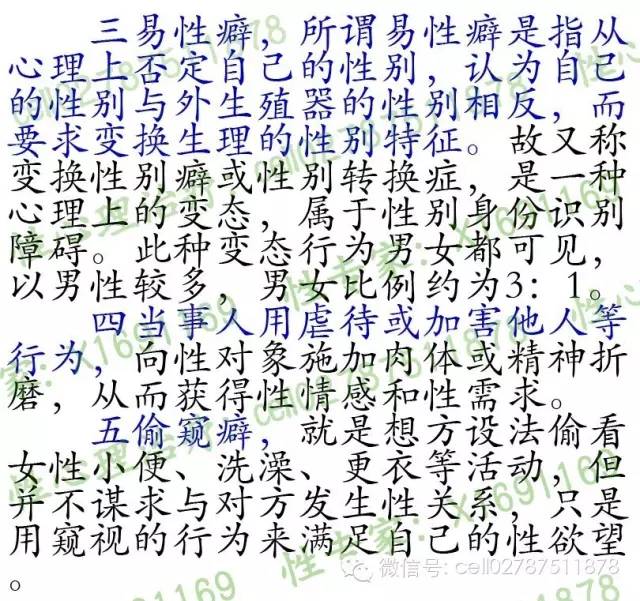 三易性癖，所谓易性癖是指从
心理上否定自己的性别，认为自己
的性别与外生殖器的性别相反，而
要求变换生理的性别特征。故又称
变换性别癖或性别转换症，是一种
心理上的变态，属于性别身份识别
障碍。此种变态行为男女都可见，
以男性较多，男女比例约为3：1。
四当事人用虐待或加害他人等
行为，向性对象施加肉体或精神折
磨，从而获得性情感和性需求。
五偷窥癖，就是想方设法偷看
女性小便、洗澡、更衣等活动，但
并不谋求与对方发生性关系，只是
用窥视的行为来满足自己的性欲望
。
微信号: cell02787511878